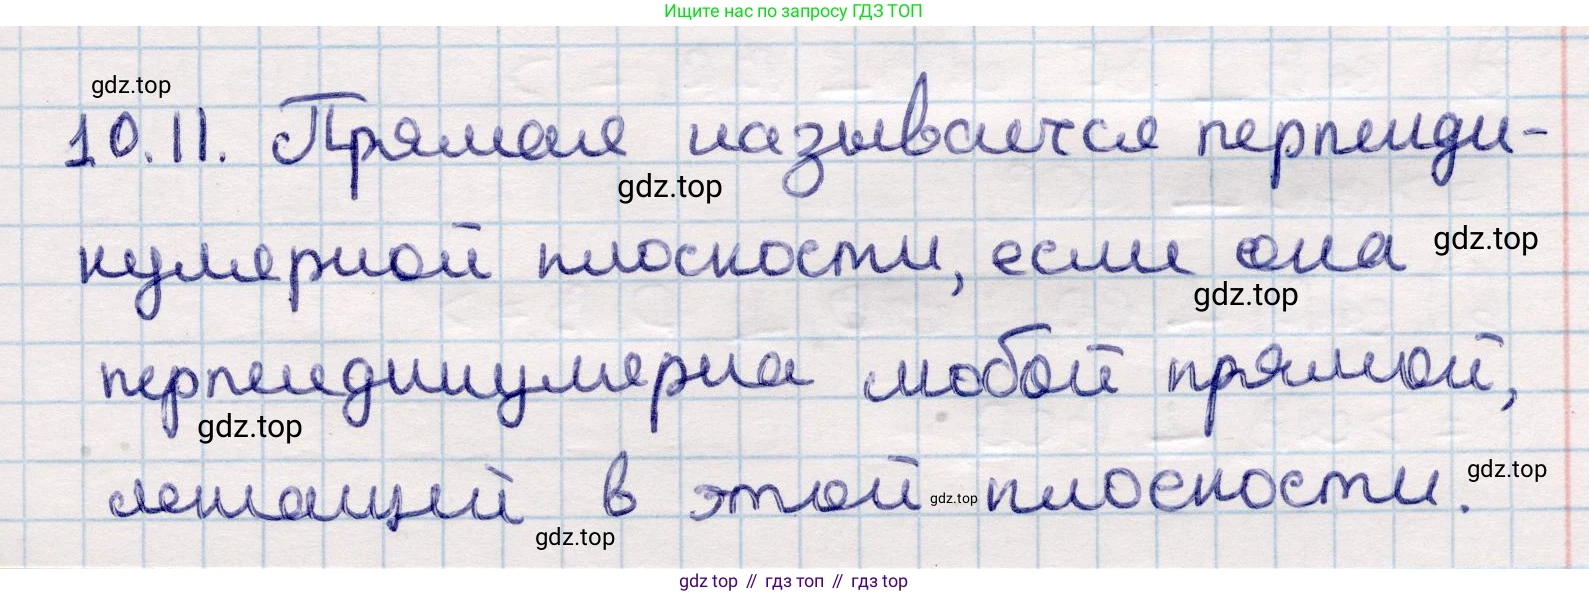 Ищите нас по запросу ГДЗ ТОП
gdz.top
10.11. Прямая называется перпенди-
gdz.top
кулярной плоскости, если она
gdz.top
gdz.top
перпендикулярна любой прямой,
gdz.top
лежащей в этой плоскости.
gdz.top
gdz.top
gdz.top
gdz top // гдз топ // гдз top